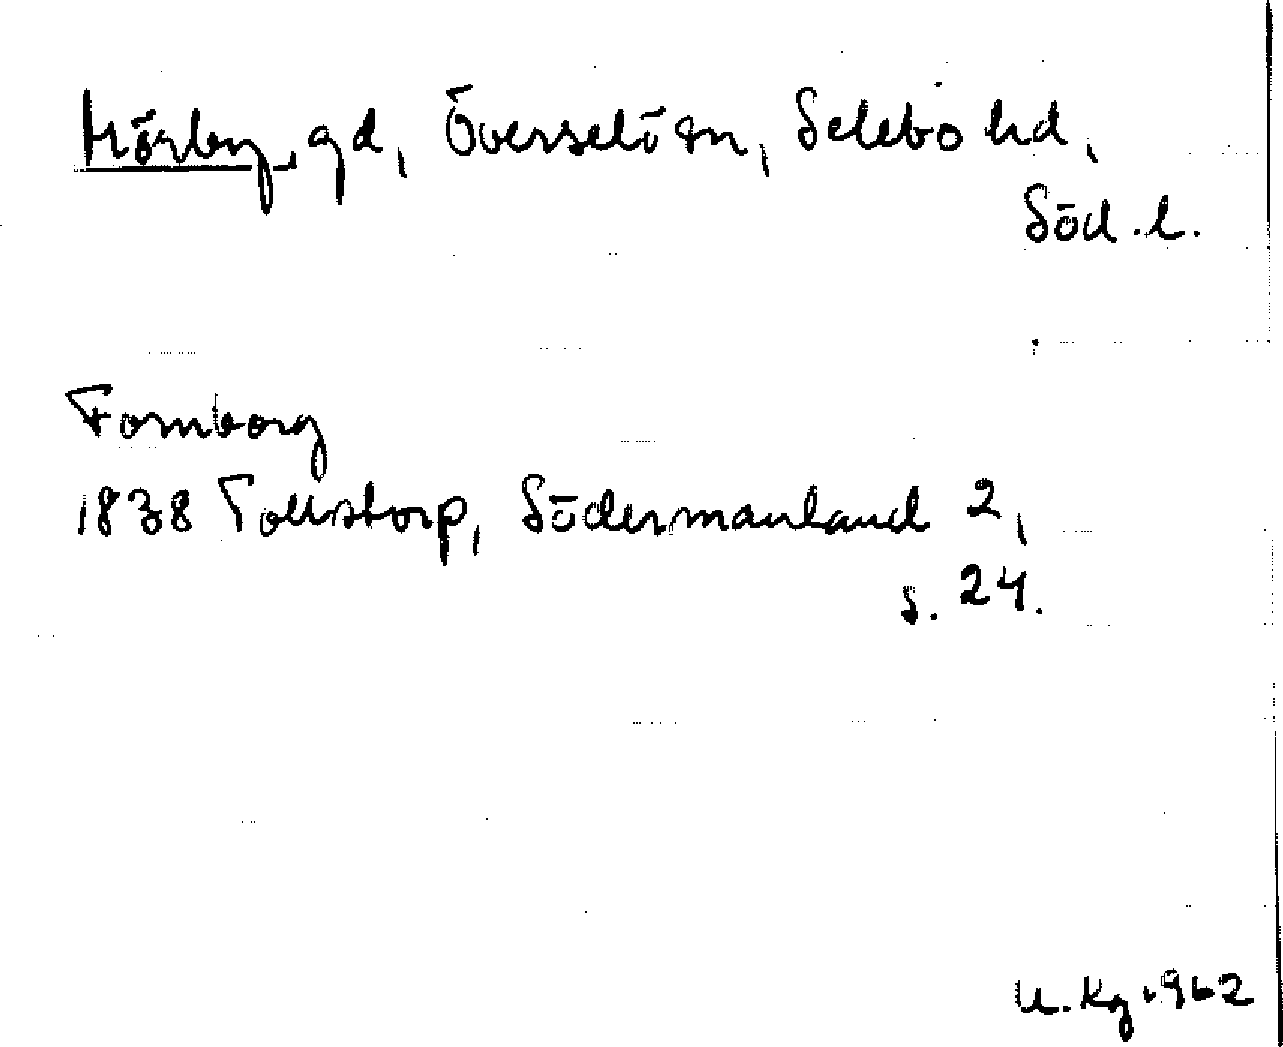 Hörby, gd, Överselö sn, Selebo hd,
Söd. l.
Fornborg
1838 Tollstorp, Södermanland 2,
s. 24.
U. Kg 1962